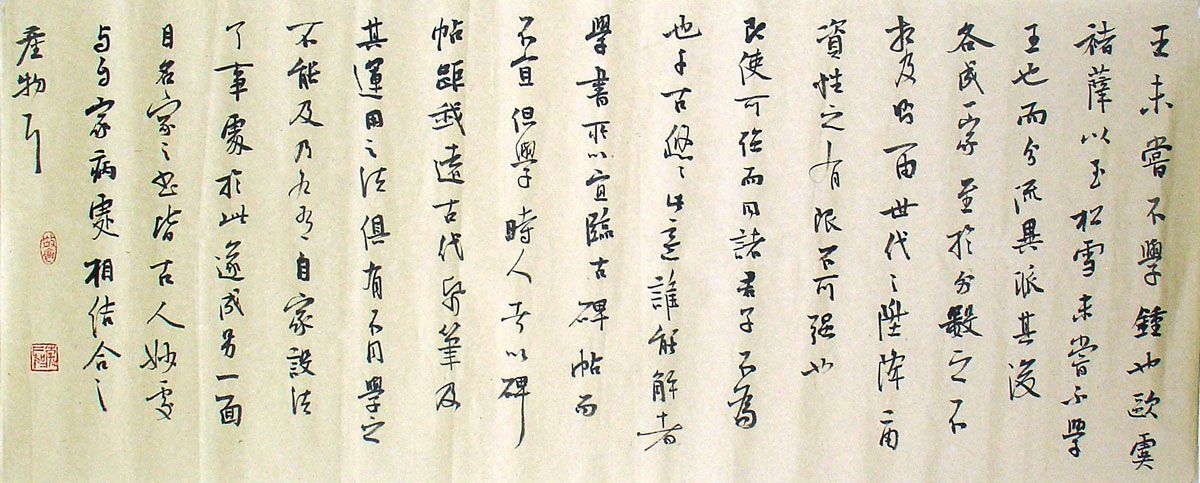 王未嘗不學鍾也歐虞
褚薛以至松雪未嘗不學
王也而分流異派其後
各成一家至於分數之不
相及則一由世代之陞降一由
資性之有限不可強也
即使可強而同諸君子不為
也千古悠悠此意誰能解者
學書所以宜臨古碑帖而
不宜但學時人者以碑
帖距我遠古代紙筆及
其運用之法俱有不同學之
不能及乃各有自家設法
了事處於此遂成另一面
目名家之書皆古人妙處
與自家病處相結合之
產物耳